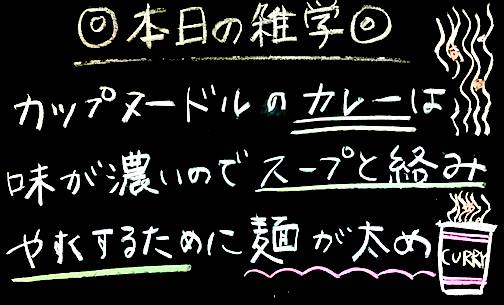 ◎本日の雑学◎
カップヌードルのカレーは
味が濃いのでスープと絡み
やすくするために麺が太め
CURRY